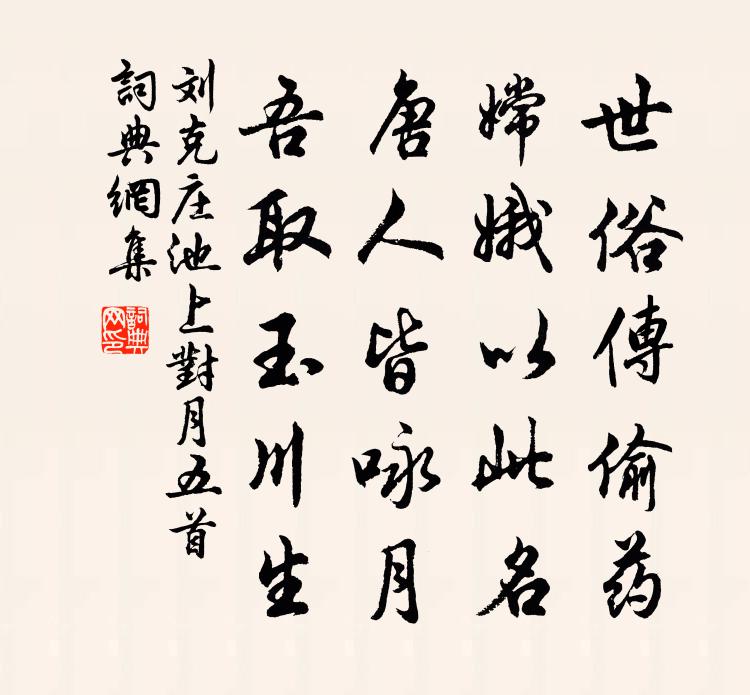 世俗傳偷药
嫦娥以此名
唐人皆咏月
吾取玉川生
刘克庄池上對月五首
詞典網集
詞典网印